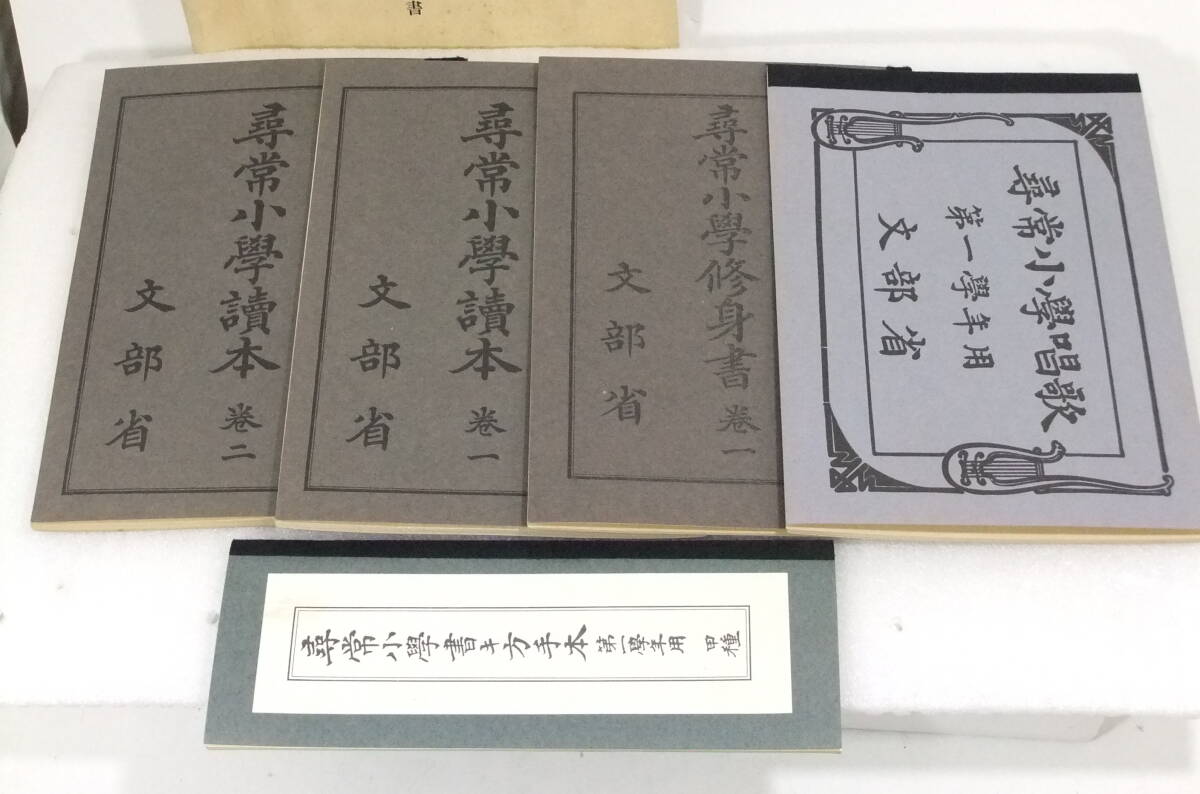 書
尋常小學讀本 卷二
文部省
尋常小學讀本 卷一
文部省
尋常小學修身書 卷一
文部省
尋常小學唱歌
第一學年用
文部省
尋常小學書キ方手本 第一學年用 甲種